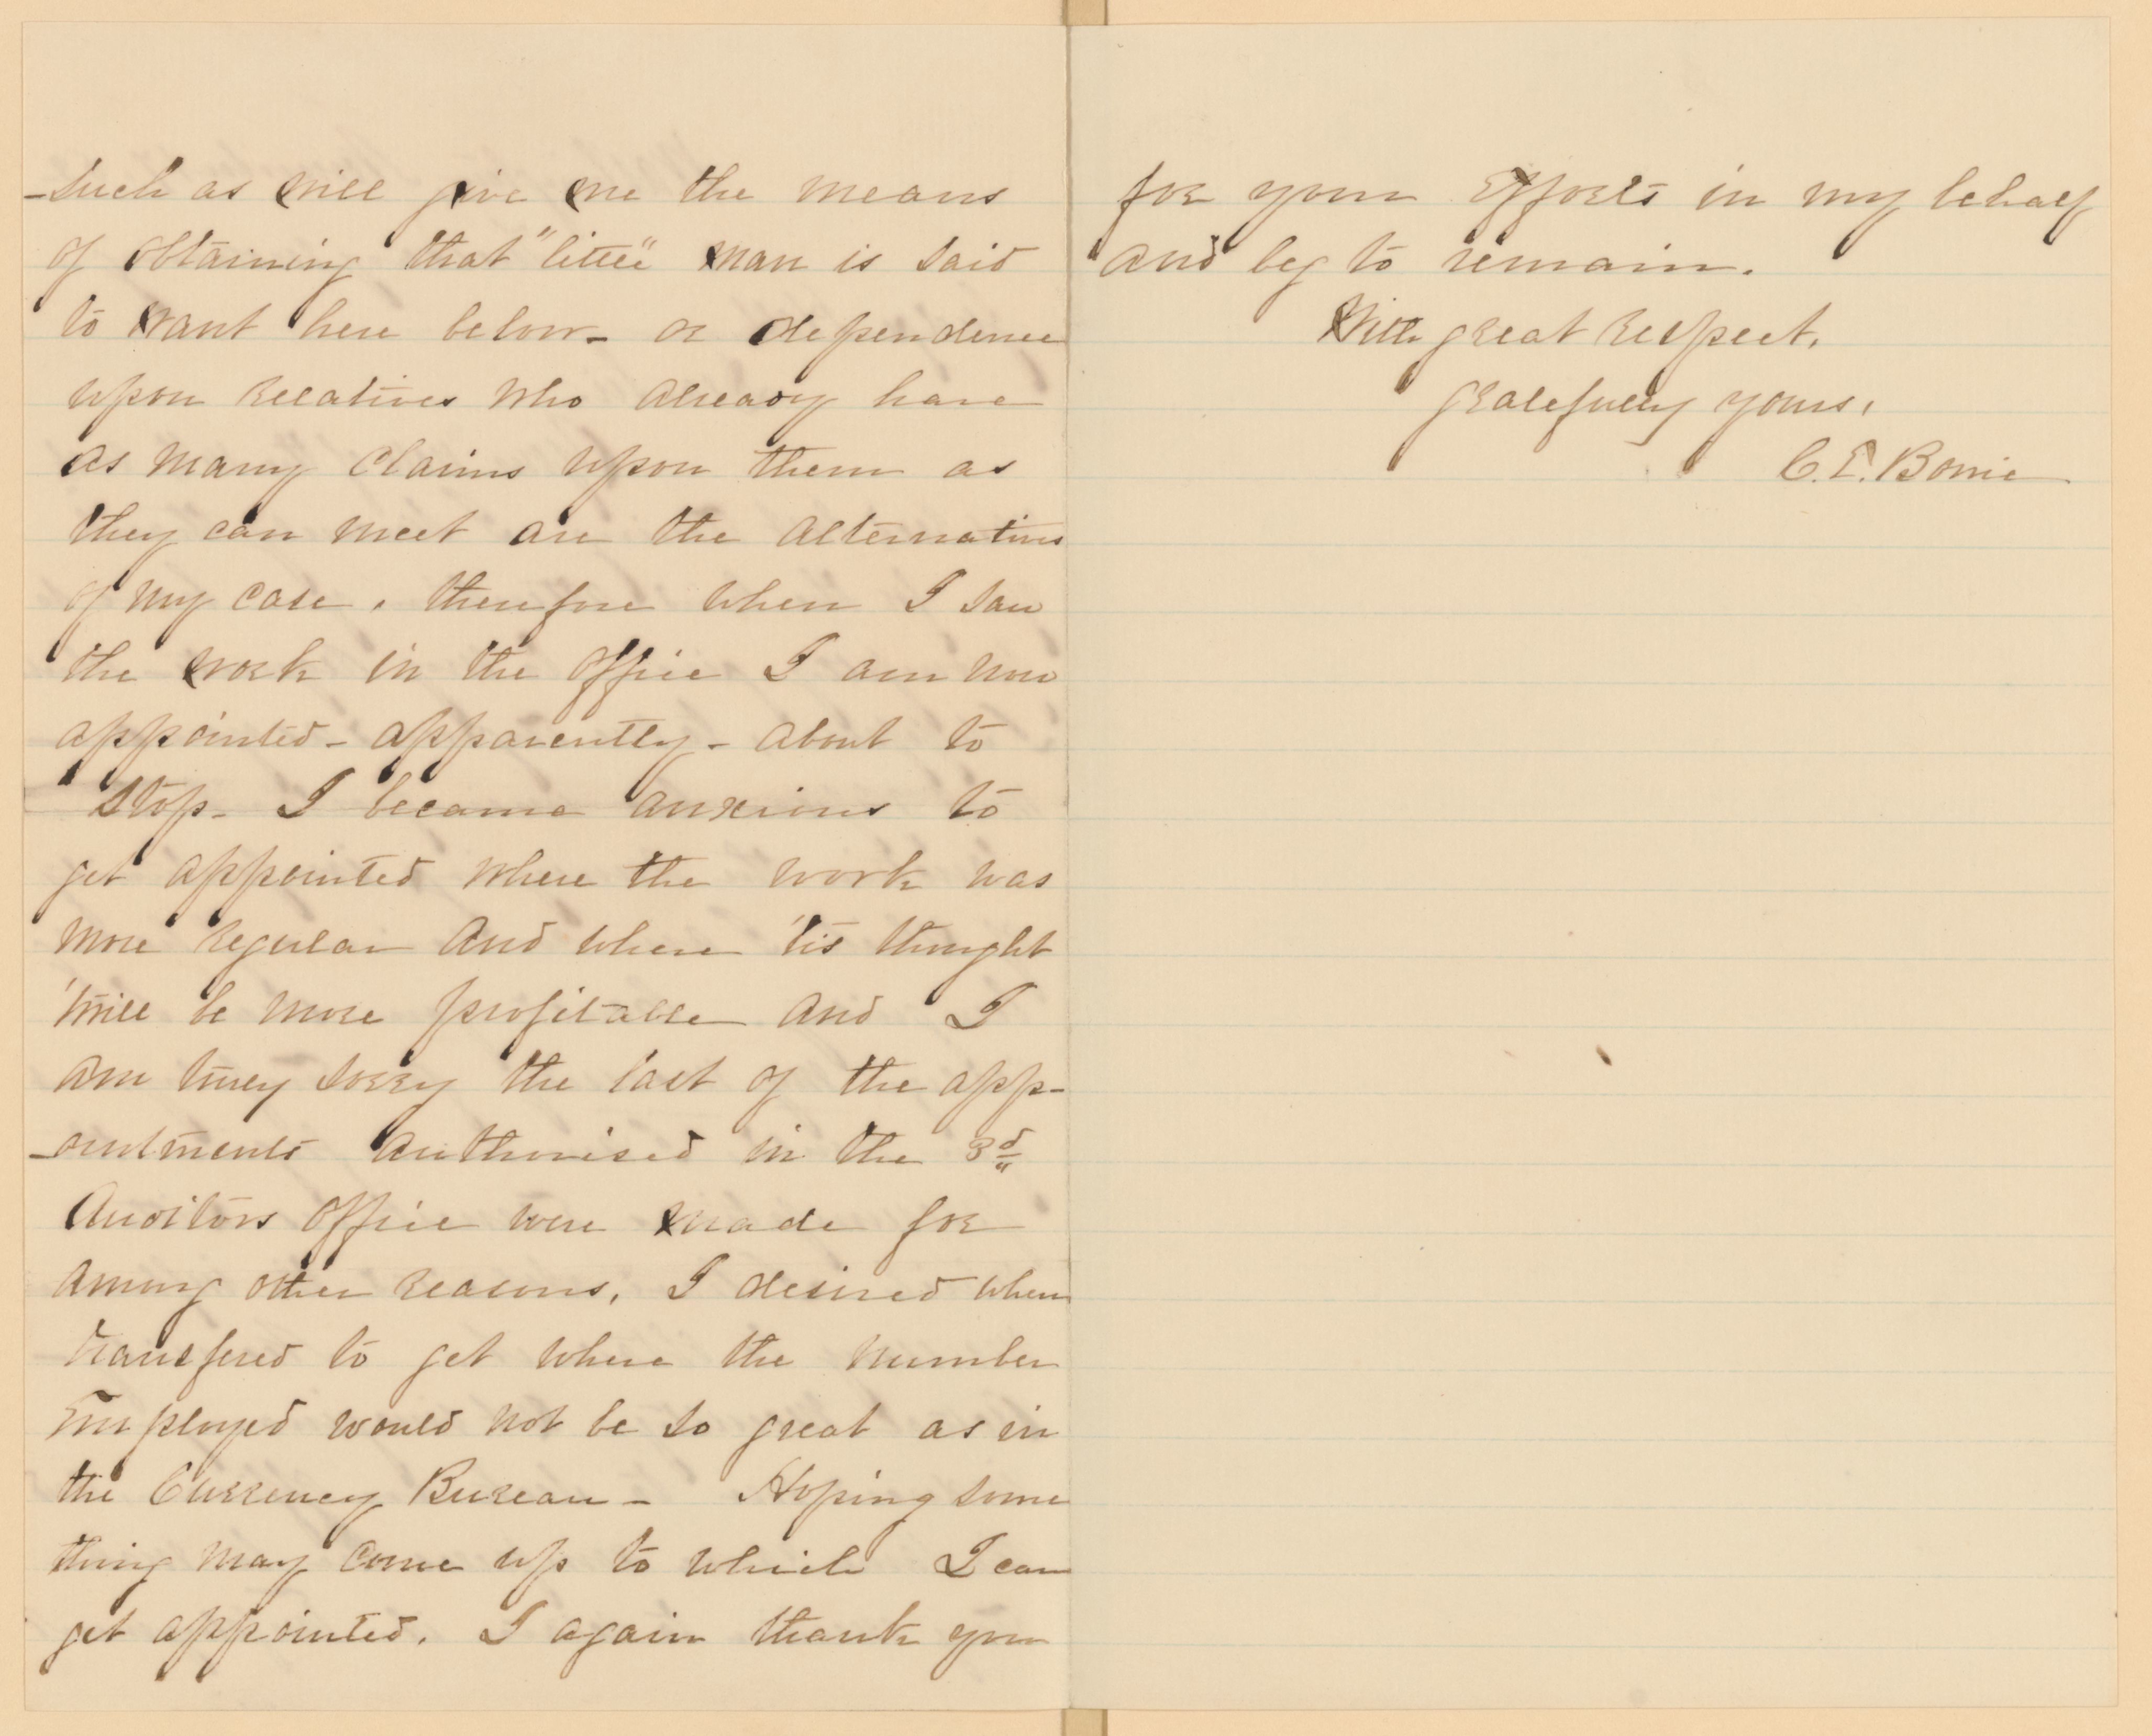 -such as will give me the means
of obtaining that "little" man is said
to want here below - or dependence
upon relatives who already have
as many claims upon them as
they can meet are the alternatives
of my case, therefore when I saw
the work in the office I am now
appointed - apparently - about to
stop - I became anxious to
get appointed where the work was
more regular and where 'tis thought
'twill be more profitable and I
am truly sorry the last of the app-
-ointments authorised in the 3d
Auditors office were made for
among other reasons, I desired when
transfered to get where the number
Employed would not be so great as in
the Currency Bureau - Hoping some
thing may come up to which I can
get appointed. I again thank you
for your Efforts in my behalf
and beg to remain.
With great respect,
gratefully yours,
C. E. Bowie